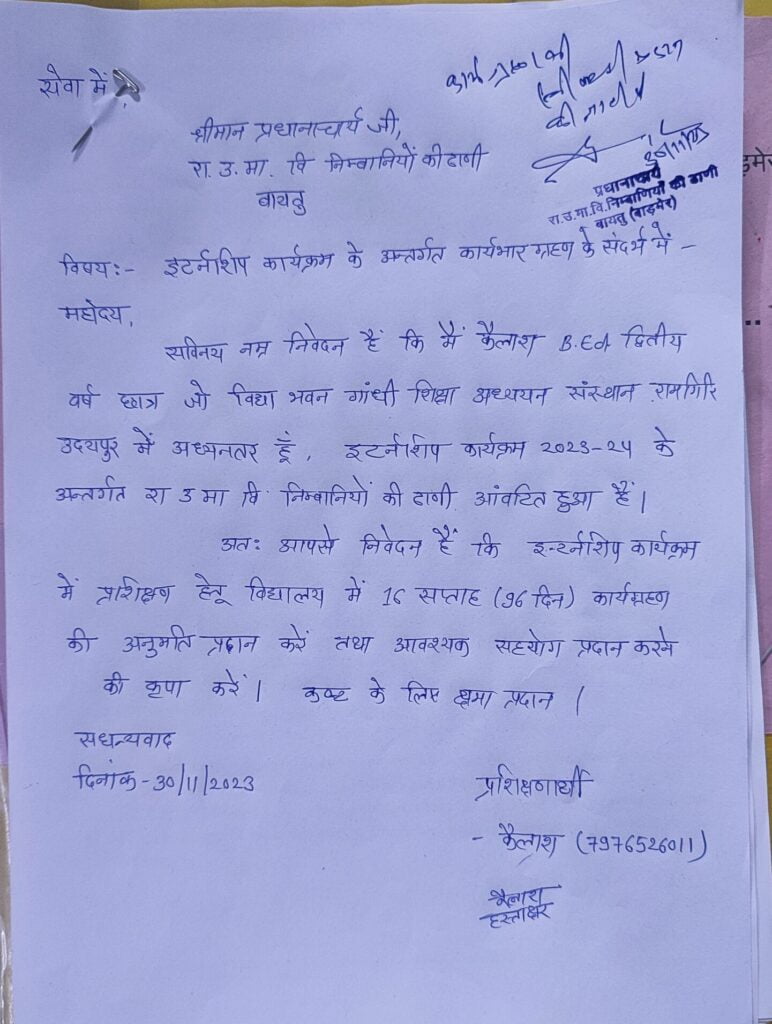 सेवा में,
श्रीमान प्रधानाचार्य जी,
रा. उ. मा. वि निम्बानियों की ढाणी
बायतु
कार्य ग्रहण की
की जाती है
30/11/23
प्रधानाचार्य
रा.उ.मा.वि.निम्बाणियों की ढाणी
बायतु (बाड़मेर)
विषय:- इटर्नशिप कार्यक्रम के अन्तर्गत कार्यभार ग्रहण के संदर्भ में -
महोदय,
सविनय नम्र निवेदन हैं कि मैं कैलाश B.Ed द्वितीय
वर्ष छात्र जो विद्या भवन गांधी शिक्षा अध्ययन संस्थान रामगिरि
उदयपुर में अध्यनतर हूँ, इटर्नशिप कार्यक्रम 2023-24 के
अन्तर्गत रा उ मा वि निम्बानियों की ढाणी आंवटित हुआ हैं।
अतः आपसे निवेदन हैं कि इन्टर्नशिप कार्यक्रम
में प्रशिक्षण हेतू विद्यालय में 16 सप्ताह (96 दिन) कार्यग्रहण
की अनुमति प्रदान करें तथा आवश्यक सहयोग प्रदान करने
की कृपा करें। कष्ट के लिए क्षमा प्रदान।
सधन्यवाद
दिनांक - 30/11/2023
प्रशिक्षणार्थी
- कैलाश (7976526011)
कैलाश
हस्ताक्षर